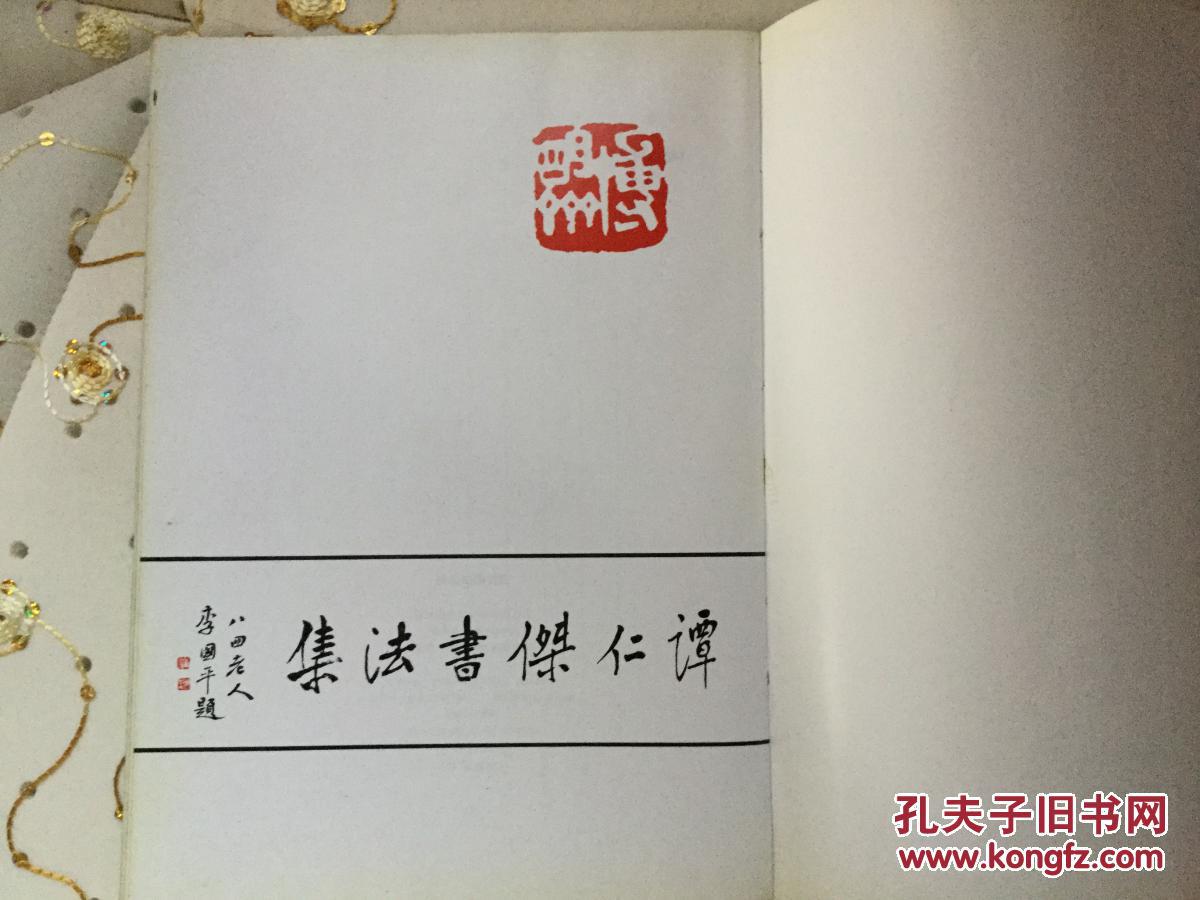 谭仁傑書法集
八四老人
李國平題
孔夫子旧书网
www.kongfz.com